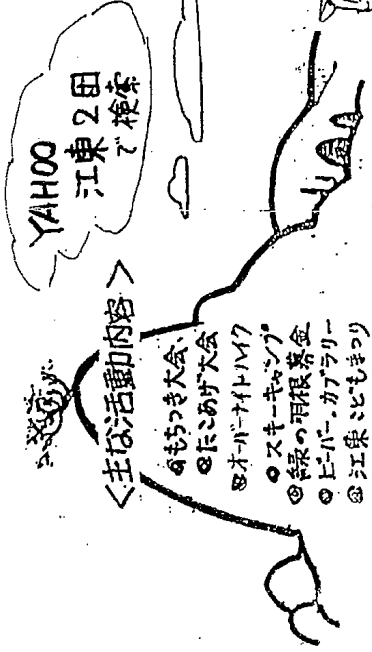 YAHOO
江東2団
で検索
<主な活動内容>
◎もちつき大会、
◎たこあげ大会
◎オーバーナイトハイク
◎スキーキャンプ
◎緑の羽根募金
◎ビーバー、カブラリー
◎江東こどもまつり